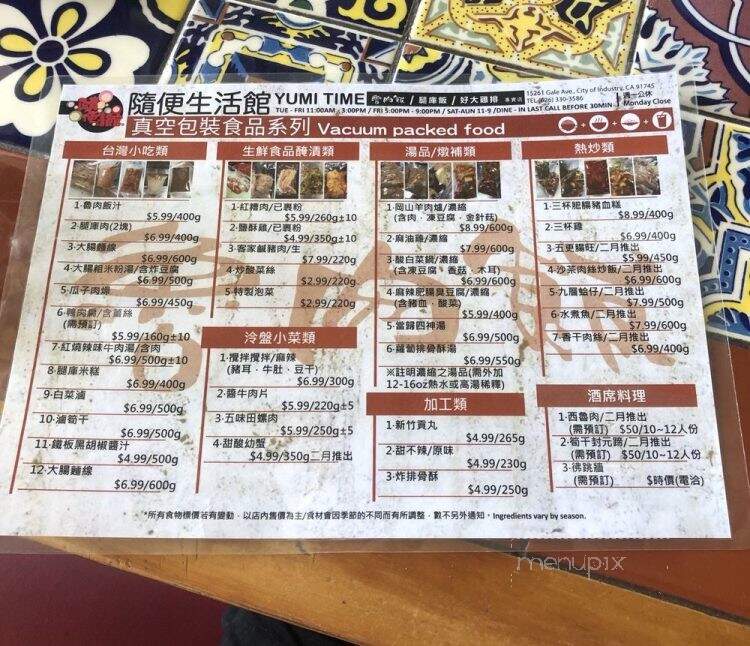 隨便生活館 YUMI TIME / 腿庫飯 / 好大雞排 專賣店
15261 Gale Ave., City of Industry, CA 91745
TEL (626) 330-3586
TUE - FRI 11:00AM - 3:00PM / FRI 5:00PM - 9:00PM / SAT-AUN 11-9 /DINE - IN LAST CALL BEFORE 30MIN
週一公休
Monday Close
真空包裝食品系列 Vacuum packed food
台灣小吃類
1·魯肉飯汁
$5.99/400g
2·腿庫肉(2塊)
$6.99/400g
3·大腸麵線
$6.99/600g
4·大腸粗米粉湯/含炸豆腐
$6.99/500g
5·瓜子肉燥
$6.99/450g
6·鴨肉羹/含薑絲
(需預訂)
$5.99/160g±10
7·紅燒辣味牛肉湯/含肉
$6.99/500g±10
8·腿庫米糕
$6.99/400g
9·白菜滷
$6.99/500g
10·滷筍干
$6.99/500g
11·鐵板黑胡椒醬汁
$4.99/500g
12·大腸麵線
$6.99/600g
生鮮食品醃漬類
1·紅糟肉/已裹粉
$5.99/260g±10
2·鹽酥雞/已裹粉
$4.99/350g±10
3·客家鹹豬肉/生
$7.99/220g
4·炒酸菜絲
$2.99/220g
5·特製泡菜
$2.99/220g
冷盤小菜類
1·攪拌攪拌/麻辣
(豬耳·牛肚·豆干)
$6.99/300g
2·醬牛肉片
$5.99/220g±5
3·五味田螺肉
$5.99/250g±5
4·甜酸幼蟹
$4.99/350g二月推出
湯品/燉補類
1·岡山羊肉爐/濃縮
(含肉·凍豆腐·金針菇)
$8.99/600g
2·麻油雞/濃縮
$7.99/600g
3·酸白菜鍋/濃縮
(含凍豆腐·香菇·木耳)
$6.99/600g
4·麻辣肥腸臭豆腐/濃縮
(含豬血·酸菜)
$5.99/400g
5·當歸四神湯
$6.99/500g
6·蘿蔔排骨酥湯
$6.99/550g
※註明濃縮之湯品(需外加
12-16oz熱水或高湯稀釋)
加工類
1·新竹貢丸
$4.99/265g
2·甜不辣/原味
$4.99/230g
3·炸排骨酥
$4.99/250g
熱炒類
1·三杯肥腸豬血糕
$8.99/400g
2·三杯雞
$6.99/400g
3·五更腸旺/二月推出
$5.99/450g
4·沙茶肉絲炒飯/二月推出
$6.99/600g
5·九層蛤仔/二月推出
$7.99/500g
6·水煮魚/二月推出
$7.99/600g
7·香干肉絲/二月推出
$6.99/400g
酒席料理
1·西魯肉/二月推出
(需預訂) $50/10~12人份
2·筍干封元蹄/二月推出
(需預訂) $50/10~12人份
3·彿跳牆
(需預訂) $時價(電洽)
*所有食物標價若有變動，以店內售價為主/食材會因季節的不同而有所調整，數不另外通知。Ingredients vary by season.
menupix